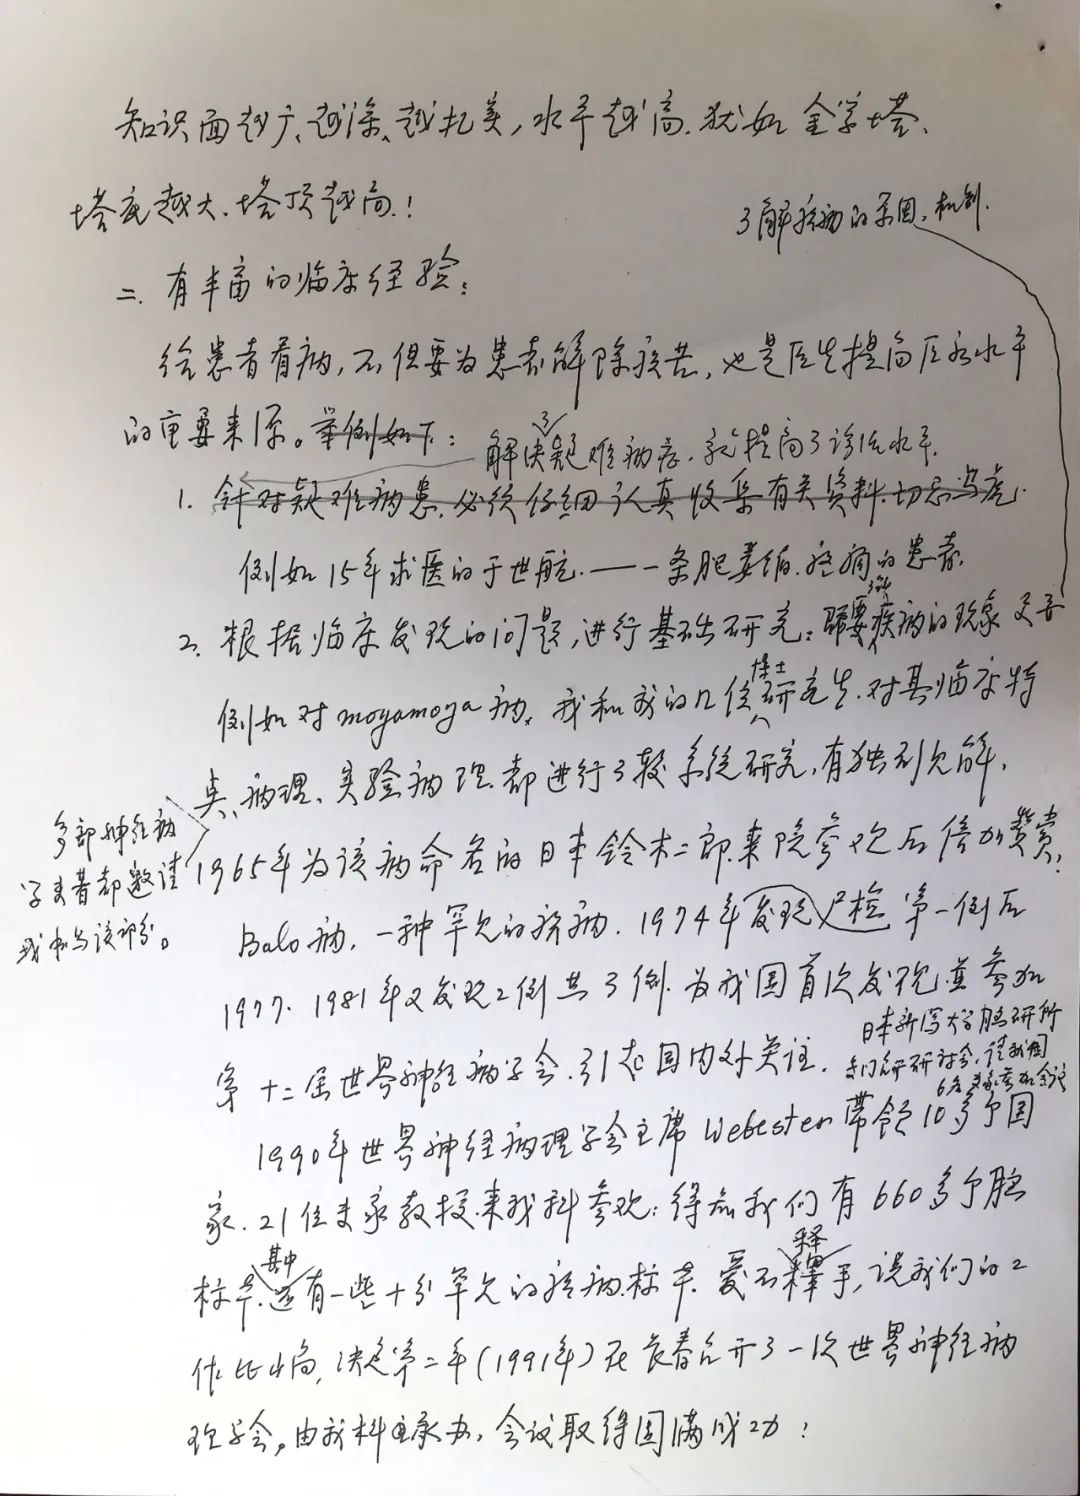 知识面越广、越深、越扎实,水平越高.犹如金字塔、
塔底越大.塔顶越高.!
了解疾病的原因,机制.
二.有丰富的临床经验:
给患者看病,不但要为患者解除疾苦,也是医生提高医疗水平
的重要来源。举例如下:
解决了疑难病症.就提高了诊治水平.
1.针对疑难病患,必须仔细认真收集有关资料.切忌马虎.
例如15年求医的于世航.——一条腿萎缩.疼痛的患者.
2.根据临床发现的问题,进行基础研究:要了解疾病的现象 更要
例如对moyamoya病,我和我的几位博士研究生.对其临床特
点、病理、实验病理都进行了较系统研究,有独到见解,
多部神经病
学专著都邀请
我书写该部分。
1965年为该病命名的日本铃木二郎来院参观后倍加赞赏,
Balo病,一种罕见的疾病.1974年发现尸检第一例后
1977.1981年又发现2例共3例.为我国首次发现.并参加
第十二届世界神经病学会.引起国内外关注.
日本新泻大学脑研所
专门召开研讨会,请我国
6名专家参加会议
1990年世界神经病理学会主席Webester带领10多个国
家.21位专家教授来我科参观:得知我们有660多个脑
标本.其中还有一些十分罕见的疾病标本.爱不释手,说我们的工
作比山高,决定第二年(1991年)在长春召开了一次世界神经病
理学会。由我科承办,会议取得圆满成功!